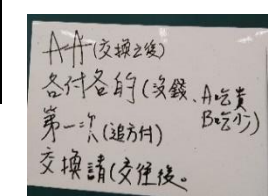 AA(交換之後)
各付各的(沒錢、A吃貴
B吃少)
第一次(追方付)
交換請(交往後。